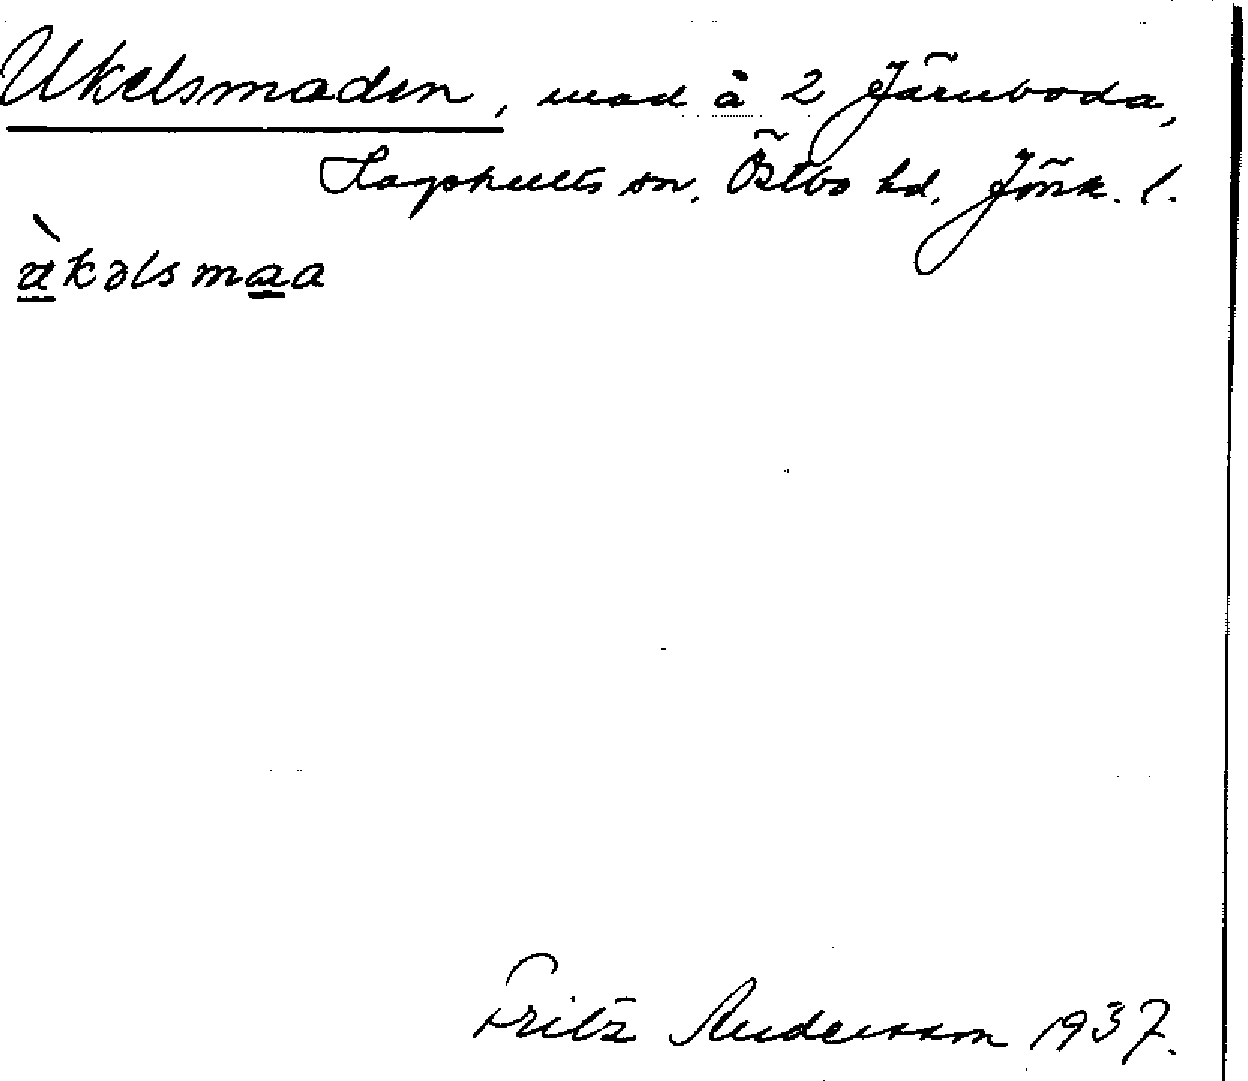 Ukelsmaden, mad å 2 Järnboda,
Tagshults sn, Östbo hd, Jönk. l.
ùkəlsmaa
Fritz Andersson 1937.